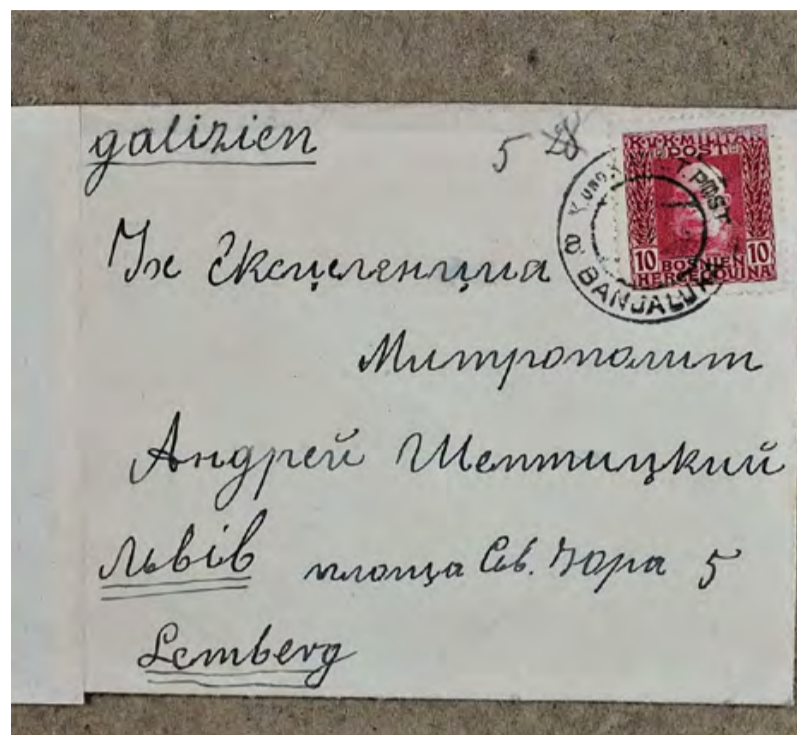 galizien
5 28
K.u.K. MILITÄR
POST
10 BOSNIEN 10
HERCEGOVINA
K. UND K. POST
BANJALUKA
Їх Ексцеленциіа
Митрополит
Андрей Шептицкий
Львів площа Св. Юра 5
Lemberg